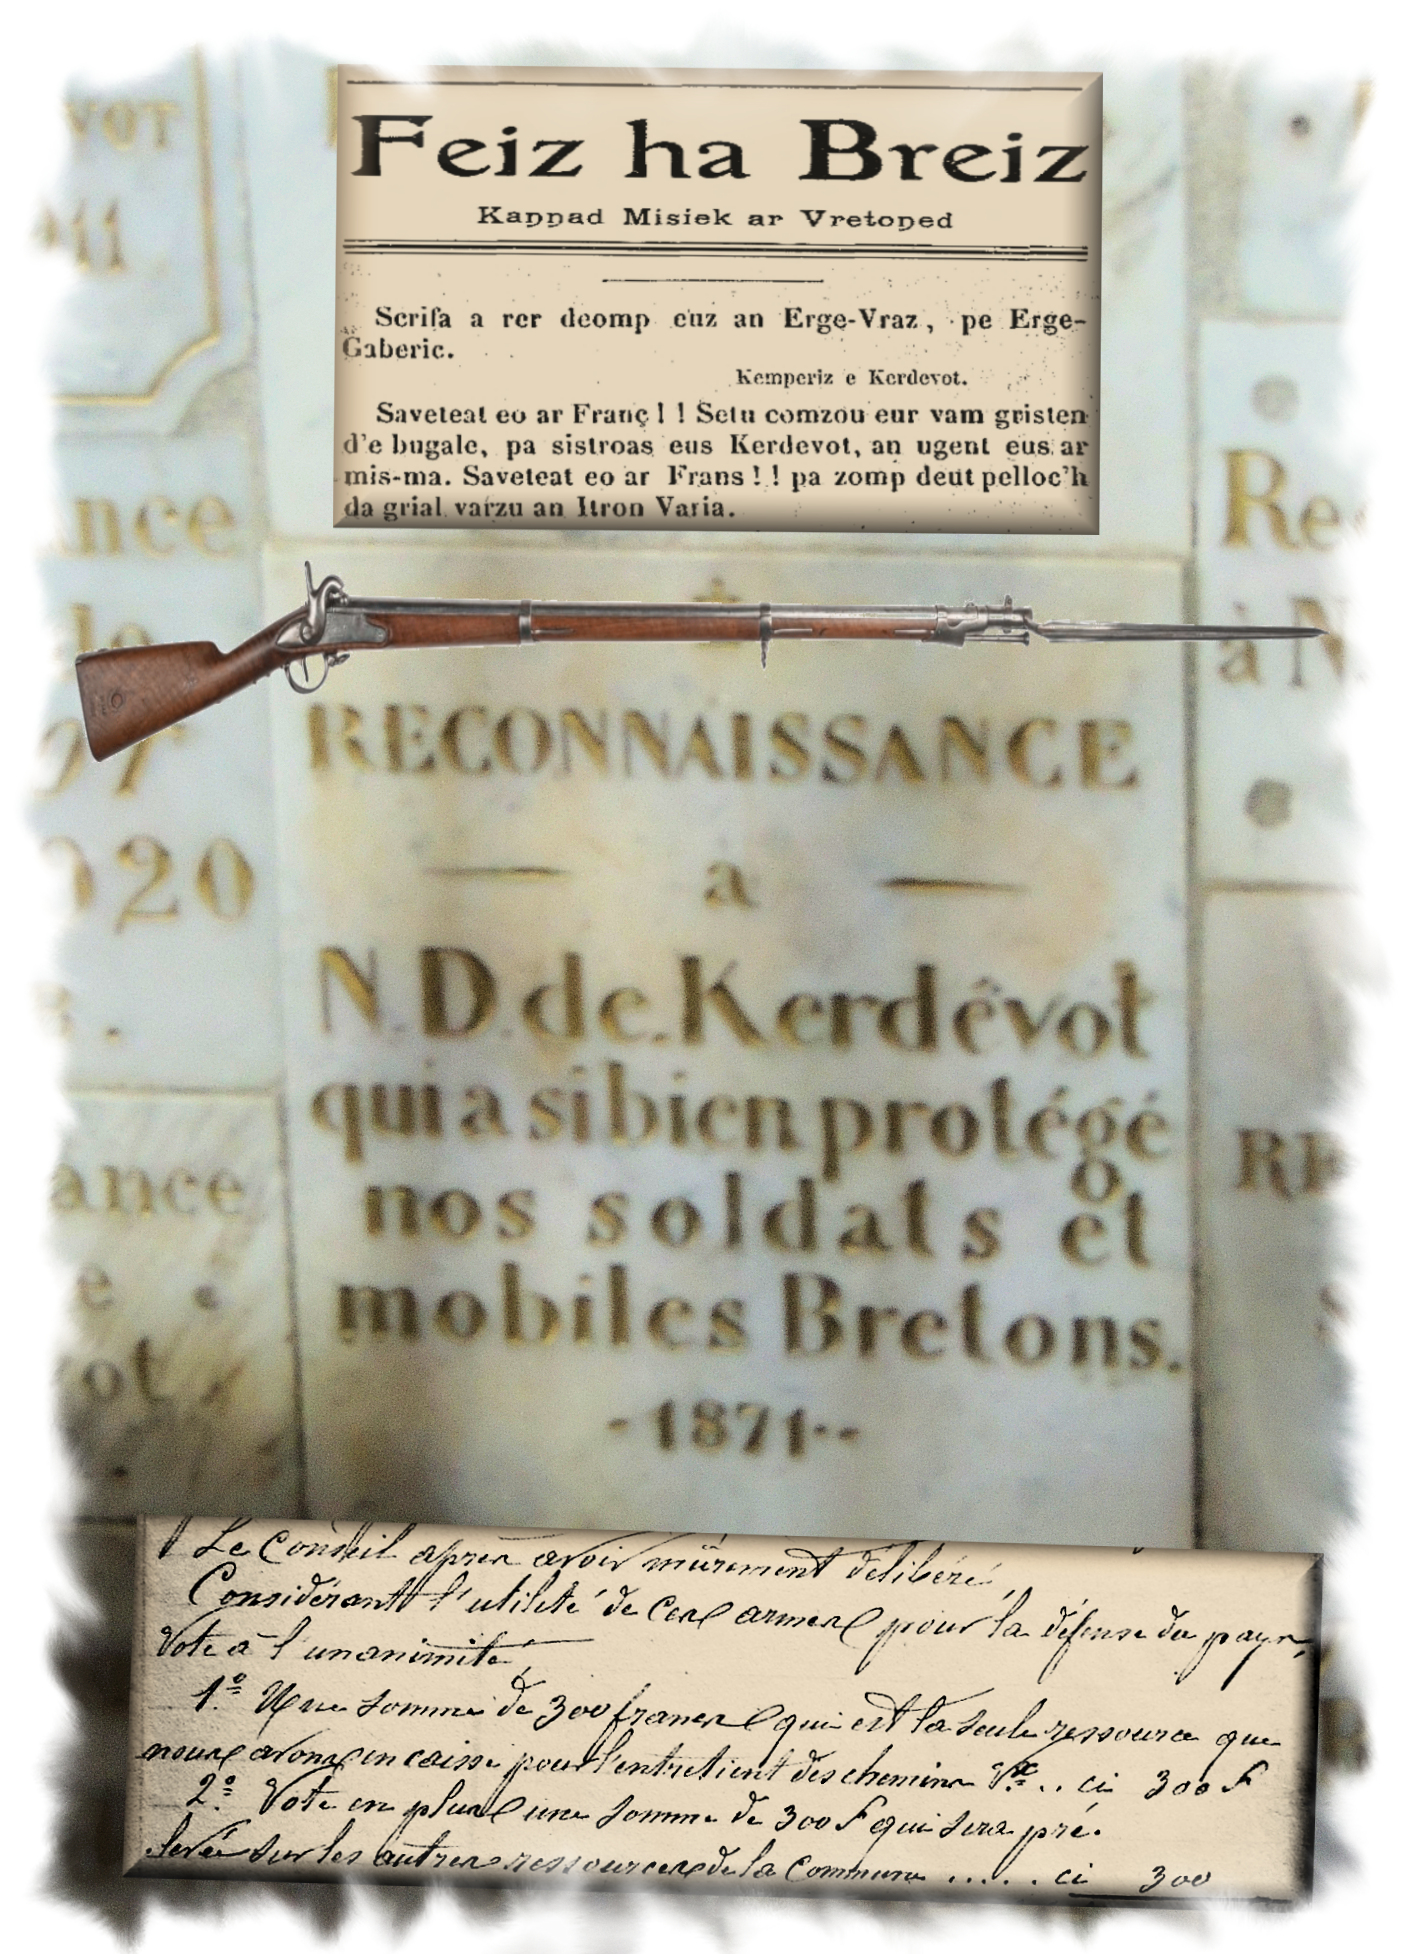 Feiz ha Breiz
Kannad Misiek ar Vretoned
Scrifa a rer deomp euz an Erge-Vraz, pe Erge-
Gaberic.
Kemperiz e Kerdevot.
Saveteat eo ar Franç ! ! Setu comzou eur vam gristen
d'e bugale, pa sistroas eus Kerdevot, an ugent eus ar
mis-ma. Saveteat eo ar Frans ! ! pa zomp deut pelloc'h
da grial varzu an Itron Varia.
VOT
11.
nce
de
OT
020
ance
e
ot
RECONNAISSANCE
a
N.D.de.Kerdévot
qui a si bien protégé
nos soldats et
mobiles Bretons.
-1871--
Re
à N
RE
Le Conseil après avoir mûrement délibéré,
Considérant l'utilité de ces armes pour la défense du pays,
Vote à l'unanimité,
1º Une somme de 300 francs qui est la seule ressource que
nous avons en caisse pour l'entretient des chemins Vx .. ci 300 F
2º Vote en plus une somme de 300 F qui sera pré-
levée sur les autres ressources de la Commune ..... ci 300